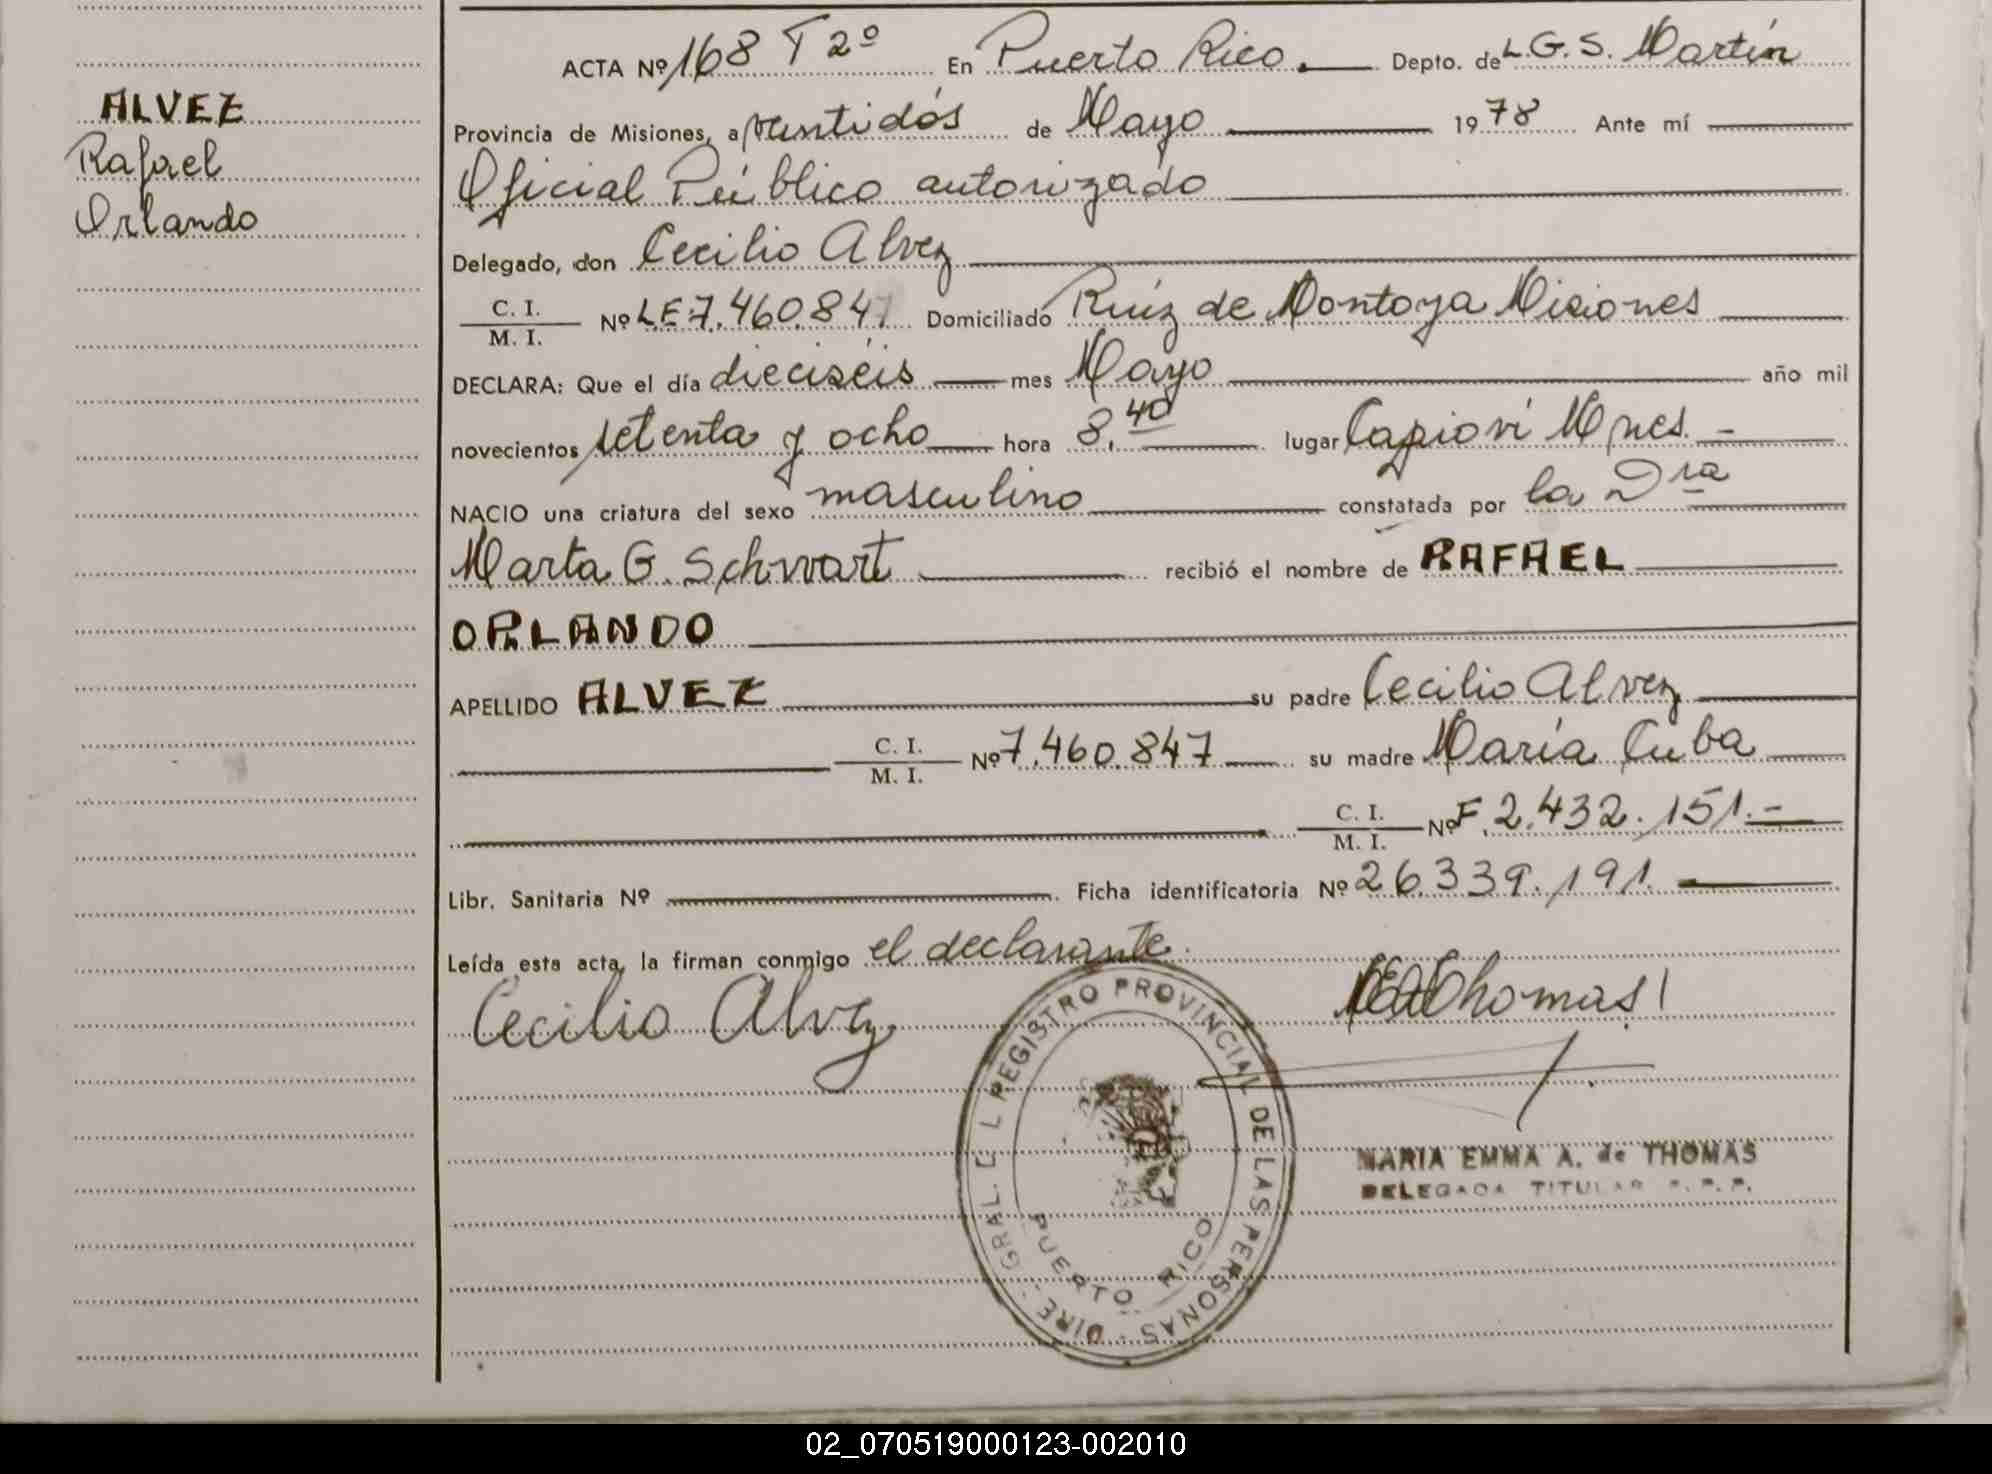 ALVEZ
Rafael
Orlando
ACTA Nº 168 T 2º En Puerto Rico. Depto. de L. G. S. Martín
Provincia de Misiones, a veintidós de Mayo 1978 Ante mí
Oficial Público autorizado
Delegado, don Cecilio Alvez
C. I.
M. I. Nº L.E. 7.460.847 Domiciliado Ruíz de Montoya Misiones
DECLARA: Que el día dieciséis mes Mayo año mil
novecientos setenta y ocho hora 8,40 lugar Capioví Mnes. -
NACIO una criatura del sexo masculino constatada por la Dra
Marta G. Schwart recibió el nombre de RAFAEL
ORLANDO
APELLIDO ALVEZ su padre Cecilio Alvez
C. I.
M. I. Nº 7.460.847 su madre María Cuba
C. I.
M. I. Nº F. 2.432.151.-
Libr. Sanitaria Nº Ficha identificatoria Nº 26.339.191.
Leída esta acta, la firman conmigo el declarante.
Cecilio Alvez
Thomas
REGISTRO PROVINCIAL DE LAS PERSONAS - DIRE. GRAL.
PUERTO RICO
MARIA EMMA A. de THOMAS
DELEGADA TITULAR R. P. P.
02_070519000123-002010